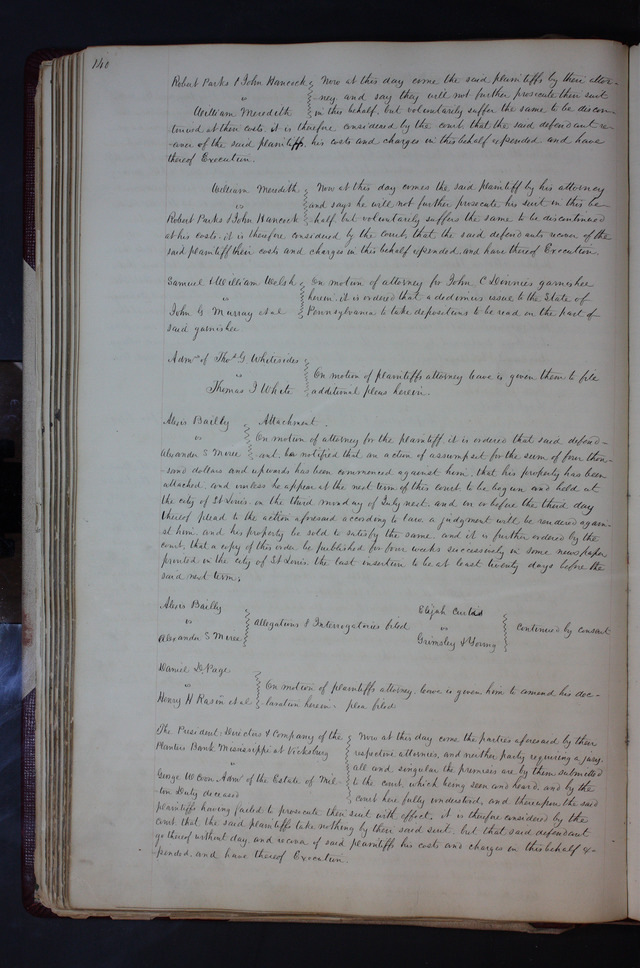 140
Robert Parks & John Hancock Now at this day come the said plaintiffs by their attor-
vs ney, and say they will not further prosecute their suit
William Meredith in this behalf, but voluntarily suffer the same to be discon-
tinued at their costs, it is therefore considered by the court, that the said defendant re-
cover of the said plaintiffs, his costs and charges in this behalf expended and have
thereof Execution.
William Meredith Now at this day comes the said plaintiff by his attorney
vs and says he will not further prosecute his suit in this be-
Robert Parks & John Hancock half but voluntarely suffers the same to be discontinued
at his costs. it is therefore considered by the court, that the said defendants recover of the
said plaintiff their costs and charges in this behalf expended, and have thereof Execution.
Samuel & William Welsh On motion of attorney for John C Dennies garnishee
vs herein, it is ordered that a dedimus issue to the State of
John G Murray et al Pennsylvania to take depositions to be read on the part of
said garnishee
Admrs of Thos G. Whitesides
vs On motion of plaintiffs attorney leave is given them to file
Thomas J White additional pleas herein.
Alexis Bailly Attachment.
vs On motion of attorney for the plaintiff it is ordered that said defend-
Alexander S Miree ant, be notified that an action of assumpsit for the sum of four thou-
sand dollars and upwards has been commenced against him, that his property has been
attached, and unless he appear at the next term of this court to be begun and held at
the city of St Louis, on the third monday of July next, and on or before the third day
thereof plead to the action aforesaid according to law a judgment will be rendered again-
st him, and his property be sold to satisfy the same. and it is further ordered by the
court, that a copy of this order be published for four weeks successively in some news paper
printed in the city of St Louis, the last insertion to be at least twenty days before the
said next term.
Alexis Bailly Elijah Curtis
vs allegations & Interrogatories filed vs Continued by consent
Alexander S Miree Grimsley & Young
Daniel D Page
vs On motion of plaintiffs attorney, leave is given him to amend his dec-
Henry H Rasin et al laration herein - plea filed
The President, Directors & Company of the Now at this day come the parties aforesaid by their
Planters Bank Mississippi at Vicksburg respective attornies, and neither party requiring a jury,
vs all and singular the premises are by them submitted
George W Coon Admr of the Estate of Mil- to the court, which being seen and heard, and by the
ton Duty deceased court here fully understood, and thereupon the said
plaintiffs having failed to prosecute their suit with effect, it is therefore considered by the
court that the said plaintiffs take nothing by their said suit, but that said defendant
go thereof without day, and recover of said plaintiffs his costs and charges in this behalf ex-
pended, and have thereof Execution.